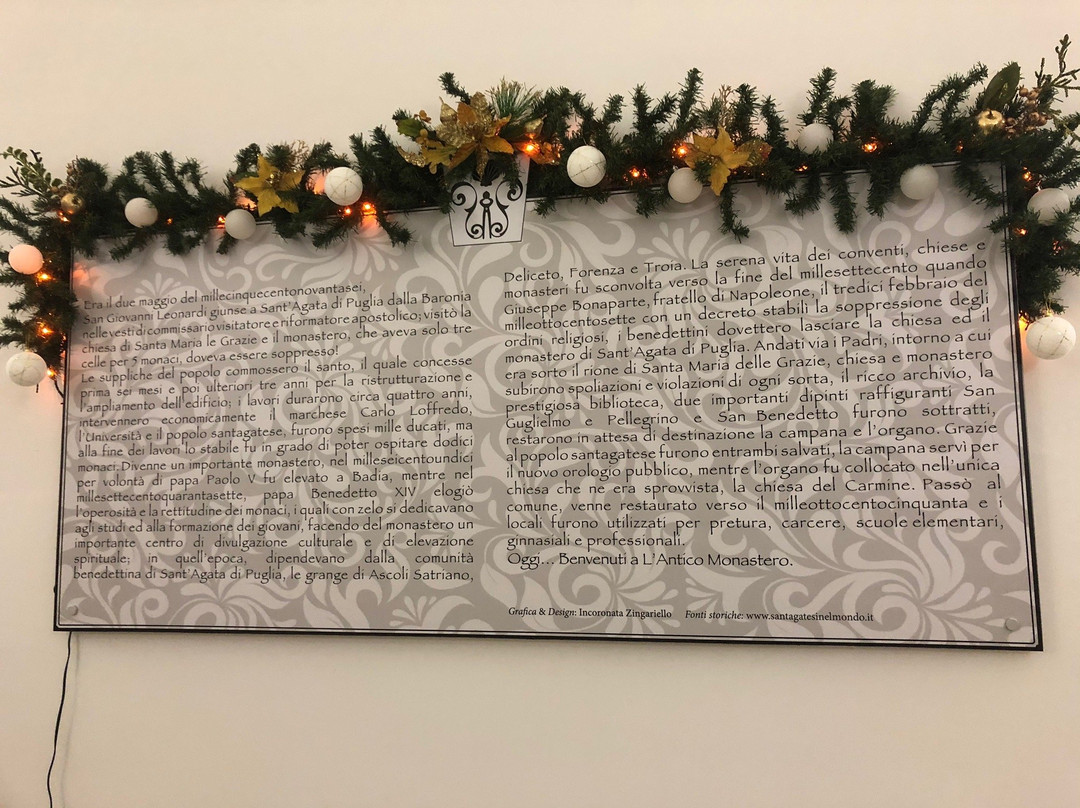 Era il due maggio del millecinquecentonovantasei,
San Giovanni Leonardi giunse a Sant'Agata di Puglia dalla Baronia
nelle vesti di commissario visitatore e riformatore apostolico; visitò la
chiesa di Santa Maria le Grazie e il monastero, che aveva solo tre
celle per 5 monaci, doveva essere soppresso!
Le suppliche del popolo commossero il santo, il quale concesse
prima sei mesi e poi ulteriori tre anni per la ristrutturazione e
l'ampliamento dell'edificio; i lavori durarono circa quattro anni,
intervennero economicamente il marchese Carlo Loffredo,
l'Università e il popolo santagatese, furono spesi mille ducati, ma
alla fine dei lavori lo stabile fu in grado di poter ospitare dodici
monaci. Divenne un importante monastero, nel milleseicentoundici
per volontà di papa Paolo V fu elevato a Badia, mentre nel
millesettecentoquarantasette, papa Benedetto XIV elogiò
l'operosità e la rettitudine dei monaci, i quali con zelo si dedicavano
agli studi ed alla formazione dei giovani, facendo del monastero un
importante centro di divulgazione culturale e di elevazione
spirituale; in quell'epoca, dipendevano dalla comunità
benedettina di Sant'Agata di Puglia, le grange di Ascoli Satriano,
Deliceto, Forenza e Troia. La serena vita dei conventi, chiese e
monasteri fu sconvolta verso la fine del millesettecento quando
Giuseppe Bonaparte, fratello di Napoleone, il tredici febbraio del
milleottocentosette con un decreto stabilì la soppressione degli
ordini religiosi, i benedettini dovettero lasciare la chiesa ed il
monastero di Sant'Agata di Puglia. Andati via i Padri, intorno a cui
era sorto il rione di Santa Maria delle Grazie, chiesa e monastero
subirono spoliazioni e violazioni di ogni sorta, il ricco archivio, la
prestigiosa biblioteca, due importanti dipinti raffiguranti San
Guglielmo e Pellegrino e San Benedetto furono sottratti,
restarono in attesa di destinazione la campana e l'organo. Grazie
al popolo santagatese furono entrambi salvati, la campana servì per
il nuovo orologio pubblico, mentre l'organo fu collocato nell'unica
chiesa che ne era sprovvista, la chiesa del Carmine. Passò al
comune, venne restaurato verso il milleottocentocinquanta e i
locali furono utilizzati per pretura, carcere, scuole elementari,
ginnasiali e professionali.
Oggi... Benvenuti a L'Antico Monastero.
Grafica & Design: Incoronata Zingariello Fonti storiche: www.santagatesinelmondo.it